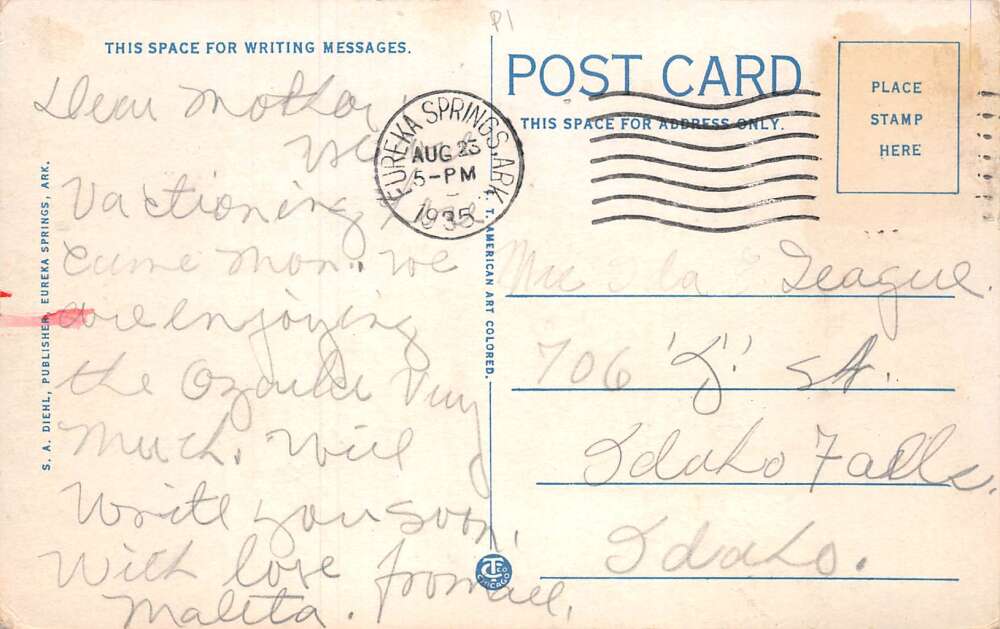 P1
THIS SPACE FOR WRITING MESSAGES.
Dear Mother
Vactioning
came Mon. we
are enjoying
the Ozarks Very
Much. Will
Write you soon,
With love from all,
Maleta.
S. A. DIEHL, PUBLISHER, EUREKA SPRINGS, ARK.
C. T. AMERICAN ART COLORED.
EUREKA SPRINGS, ARK.
AUG 23
5-PM
1935
POST CARD
THIS SPACE FOR ADDRESS ONLY.
PLACE
STAMP
HERE
Ila Teague.
706 "J" St.
Idaho Falls.
Idaho.
CT CO
CHICAGO